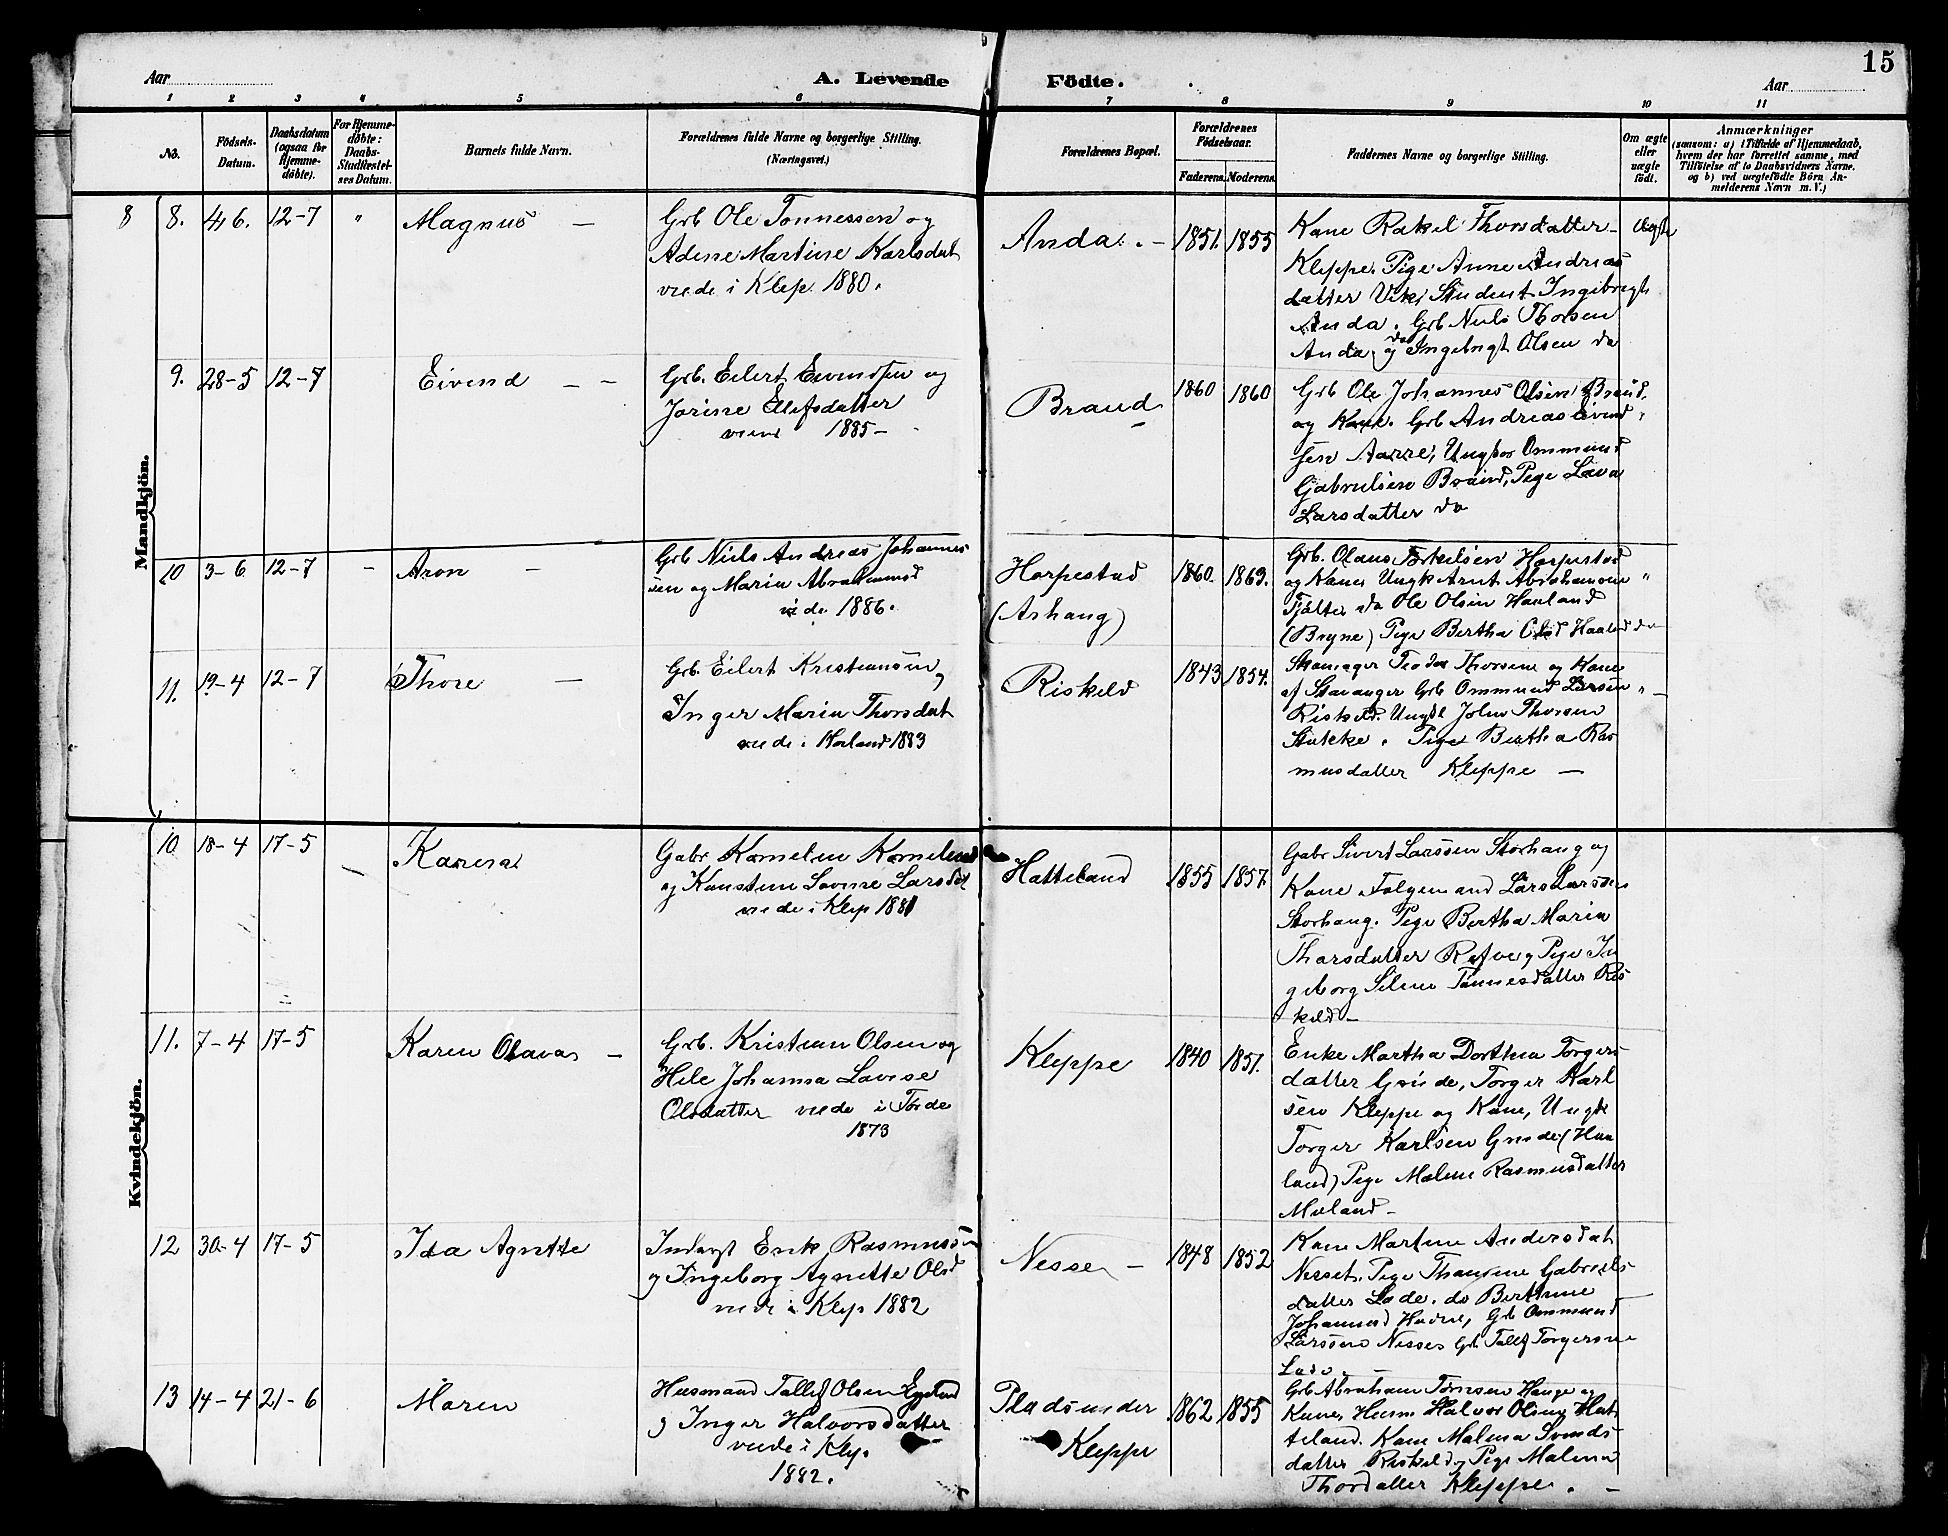 15
Aar
A. Levende
Födte.
Aar
1 2 3 4 5 6 7 8 9 10 11
No.
Födsels-
Datum.
Daabsdatum
(ogsaa for
Hjemme-
døbte).
For Hjemme-
døbte:
Daabs-
Stadfæstel-
ses Datum.
Barnets fulde Navn.
Forældrenes fulde Navne og borgerlige Stilling.
(Næringsvei.)
Forældrenes Bopæl.
Forældrenes
Födselsaar.
Faderens. Moderens.
Faddernes Navne og borgerlige Stilling.
Om ægte
eller
uægte
født.
Anmærkninger
(saasom: a) i Tilfælde af Hjemmedaab,
hvem der har forrettet samme, med
Tilføielse af to Daabsvidners Navne,
og b) ved uægtefödte Börn An-
melderens Navn m. V.)
Mandkjön.
8 8. 4/6. 12-7 " Magnus —
Grb Ole Tønnessen og
Adine Martine Karlsdat
viede i Klep 1880.
Anda. — 1851. 1855
Kone Rakel Thorsdatter
Kleppe. Pige Anne Andreas
datter Vik, Student Ingebregt
Anda. Grb Niels Thorsen
Anda, og do Ingebrigt Olsen do
Ægte
9. 28-5 12-7 Eivend — —
Grb. Eilert Eivendsen og
Jorine Elefsdatter
viede 1885 —
Braud 1860 1860
Grb Ole Johannes Olsen Braud
og Kone. Grb Andreas Eivind
sen Aarre, Ungkar Ommund
Gabrielsen Braud, Pige Lava
Larsdatter do
"
10 3-6 12-7 — Aron —
Grb Niels Andreas Johannes
sen og Maria Abrahamsd
viede 1886.
Horpestad
(Ashaug)
1860. 1863.
Grb. Olaus Torkelsen Horpestad
og Kone Ungk Arnt Abrahamsen
Tjøtter do Ole Olsen Haaland
(Bryne) Pige Bertha Olsd Haaland do
"
11. 19-4 12-7 Thore —
Grb. Eilert Kristiansen
og
Inger Maria Thorsdat
viede i Norland 1883
Riskeld 1843 1854.
Thorsen og Kone
af Stavanger Grb Ommund Larsen
Riskeld. Ungk John Thorsen
Stakke. Pige Bertha Ras
musdatter Kleppe —
" —
Kvindekjön.
10 18-4 17-5 Karina
Gabr Kornelius Kornelius
og Konstine Lovise Larsdat
viede i Klep 1881
Hatteland 1855 1857.
Gabr Sivert Larssen Storhaug og
Kone, Følgemand Lars Larssen
Storhaug. Pige Bertha Maria
Thorsdatter Refve, Pige In
geborg Seline Tønnesdatter Ris
keld —
11. 7-4 17-5 Karen Olava —
Grb. Kristian Olsen og
Hele Johanna Lovise
Olsdatter viede i Førde
1873
Kleppe 1840 1851.
Enke Martha Dorthea Torgers
datter Grude, Torger Karl
sen Kleppe og Kone, Ungk
Torger Karlsen Grude (Haa
land) Pige Malene Rasmusdatter
Meland —
12 30-4 17-5 Ida Agnette
Inderst Erik Rasmussen
og Ingeborg Agnette Olsd
viede i Klep 1882
Nesse — 1848 1852
Kone Martine Andersdat
Nesset. Pige Gabriels
datter Lode. do Berthine
Johannesd Grb Ommund
Larssen Nesse Grb Tollef Torgersen
Lode
13 14-4 21-6 Maren
Husmand Tollef Olsen Egeland
og Inger Halvorsdatter
viede i Klep.
1882.
Pladsunder
Kleppe
1862 1855
Grb Abraham Tørresen Hauge og
Kone, Husm Halvor Olsen Hat
teland. Kone Malena Svends
datter Riskeld, Pige Malena
Thordatter Kleppe. —